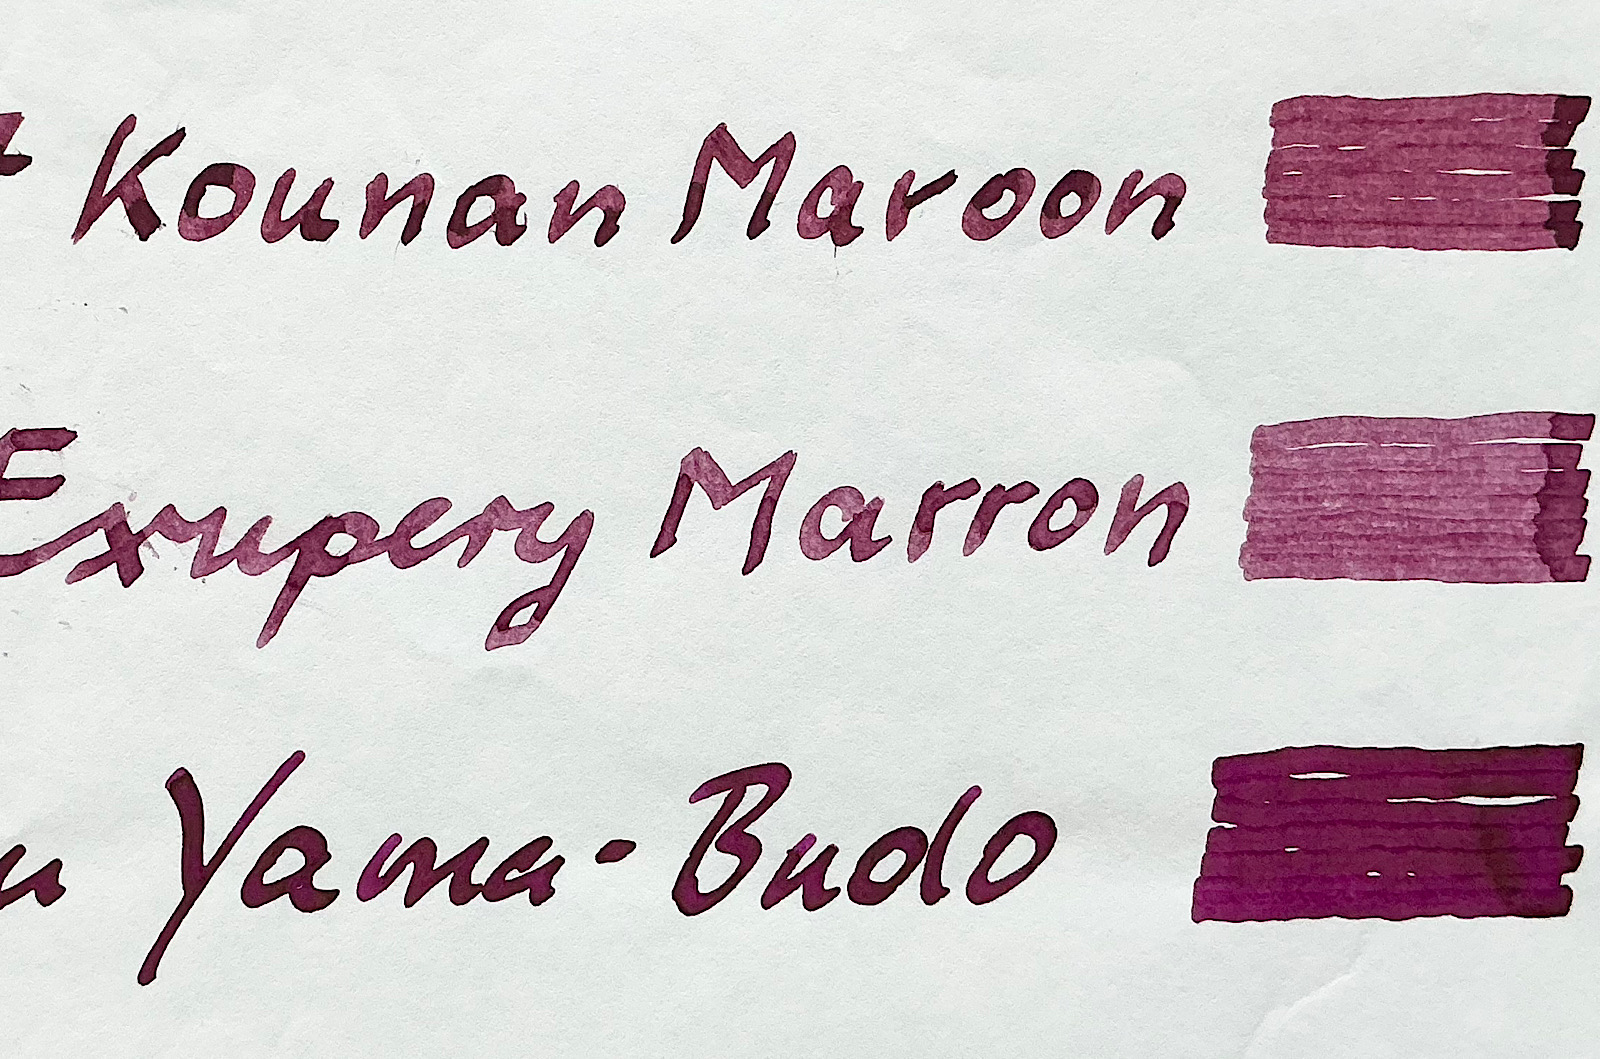 Kounan Maroon
Exupery Marron
Yama-Budo